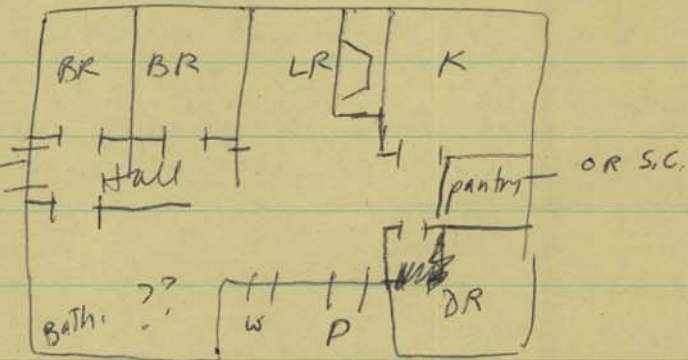 BR BR LR K
Hall
pantry OR S.C.
Bath. ?? W P DR